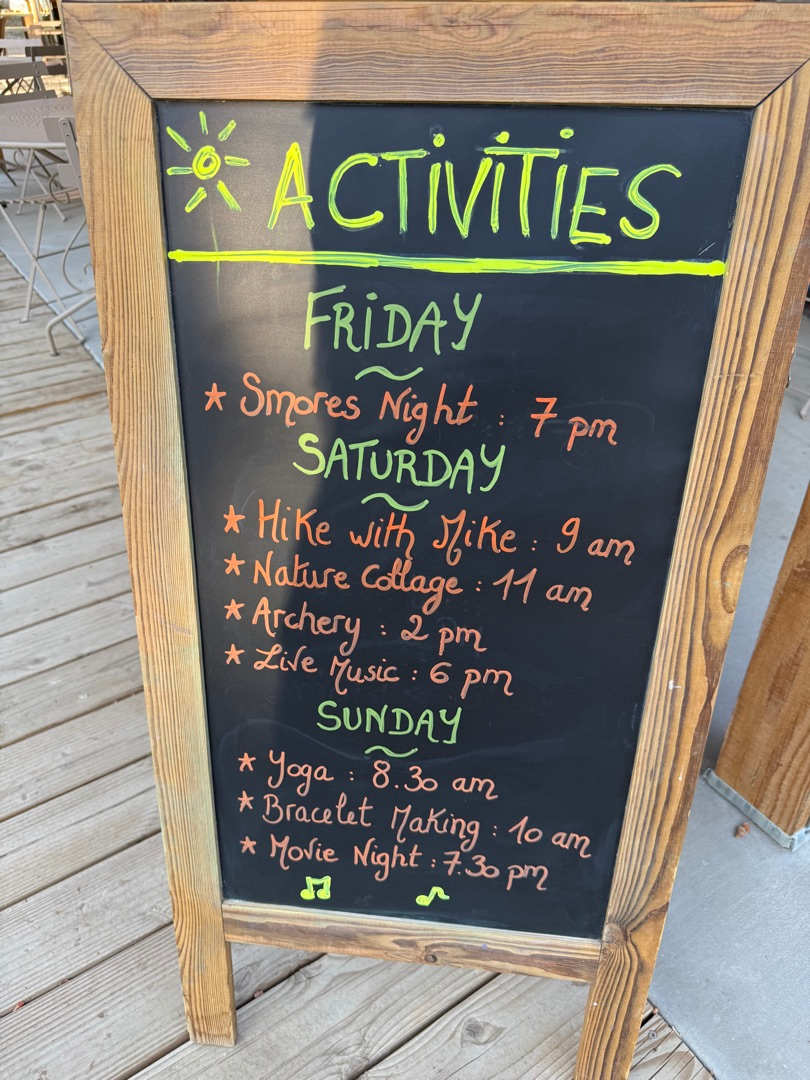 ACTiViTiES
FRiDAY
* Smores Night : 7 pm
SATURDAY
* Hike with Mike : 9 am
* Nature Collage : 11 am
* Archery : 2 pm
* Live Music : 6 pm
SUNDAY
* Yoga : 8.30 am
* Bracelet Making : 10 am
* Movie Night : 7.30 pm